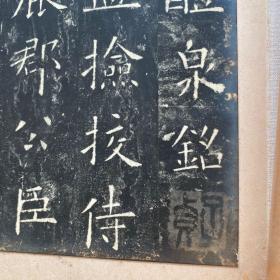 醴泉銘
監撿挍侍
鹿郡公臣